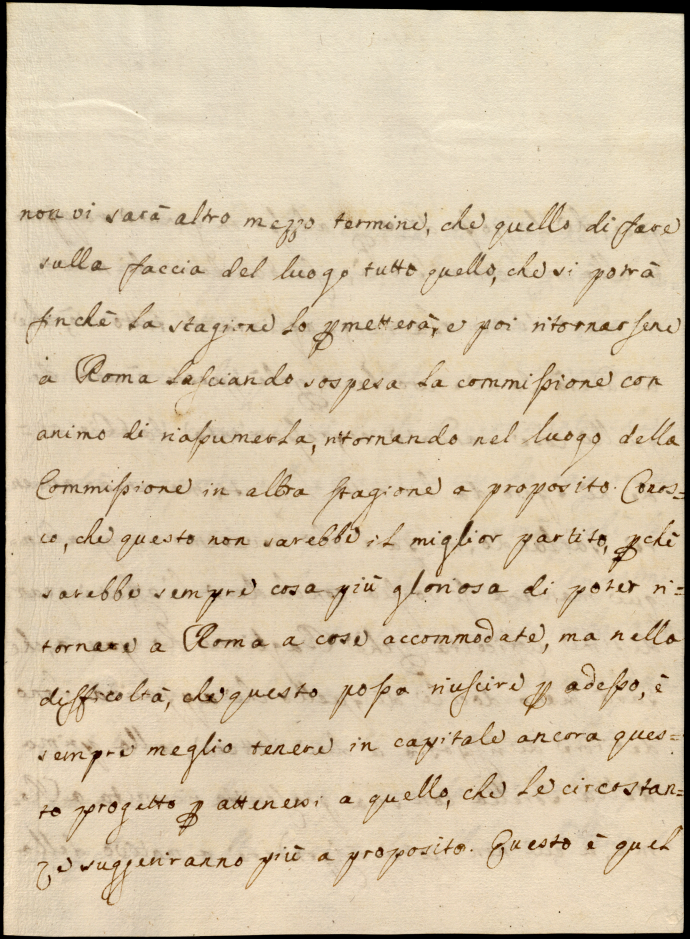 non vi sarà altro mezzo termine, che quello di fare
sulla faccia del luogo tutto quello, che si potrà
finchè la stagione lo ꝑmetterà, e poi ritornarsene
à Roma lasciando sospesa la commissione con
animo di riassumerla, ritornando nel luogo della
Commissione in altra stagione a proposito. Conos=
co, che questo non sarebbe il miglior partito, ꝑchè
sarebbe sempre cosa più gloriosa di poter ri=
tornare a Roma a cose accommodate, ma nella
difficoltà, che questo possa riuscire ꝑ adesso, è
sempre meglio tenere in capitale ancora ques=
to progetto ꝑ attenersi a quello, che le circostan=
ze suggeriranno più a proposito. Questo è quel